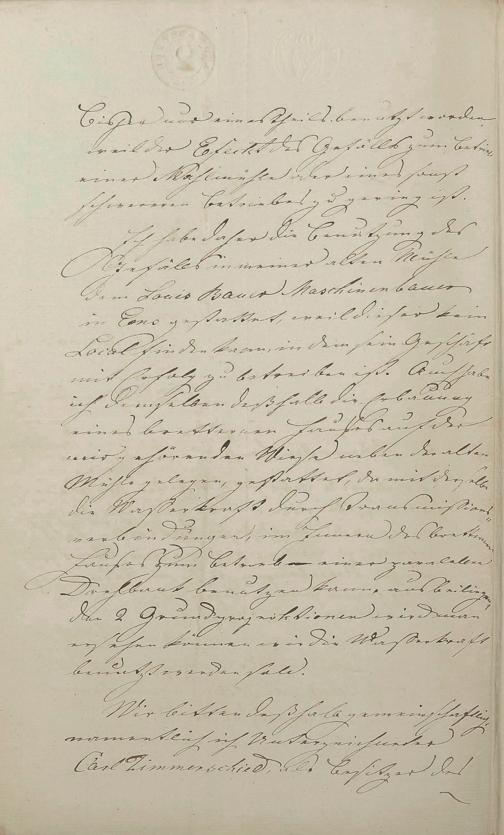 bisher nur eines Theils benutzt worden,
weil der Effect des Gefälls zum Betrieb
einer Mahlmühle oder eines sonst
schwereren Betriebes zu gering ist.
Ich habe daher die Benutzung des
Gefälls in meiner alten Mühle
dem Louis Bauer Maschinenbauer
in Ems gestattet, weil dieser kein
Local finden kann, in dem sein Geschäft
mit Erfolg zu betreiben ist. Auch habe
ich demselben deßhalb die Erbauung
eines bretternen Hauses auf der
mir gehörenden Wiese neben der alten
Mühle gelegen, gestattet, da mit derselbe
die Wasserkraft durch Transmissions-
verbindungen, im Innern des brettern
Hauses zum Betrieb einer parallelen
Drehbank benutzen kann, aus beiliegen-
den 2 Grundprojektionen wird man
ersehen können wie die Wasserkraft
benutzt werden soll.
Wir bitten deßhalb gemeinschaftlich,
namentlich ich Unterzeichneter
Carl Zimmerschied, als Besitzer des